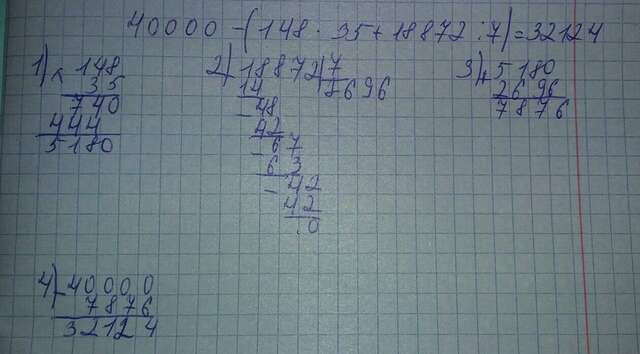 40000 - (148 · 35 + 18872 : 7) = 32124
1) × 148
35
740
444
5180
2) - 18872 | 7
14 2696
- 48
42
- 67
63
- 42
42
0
3) + 5180
2696
7876
4) - 40000
7876
32124